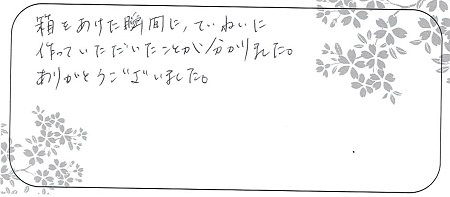 箱をあけた瞬間に、ていねいに
作っていただいたことが分かりました。
ありがとうございました。